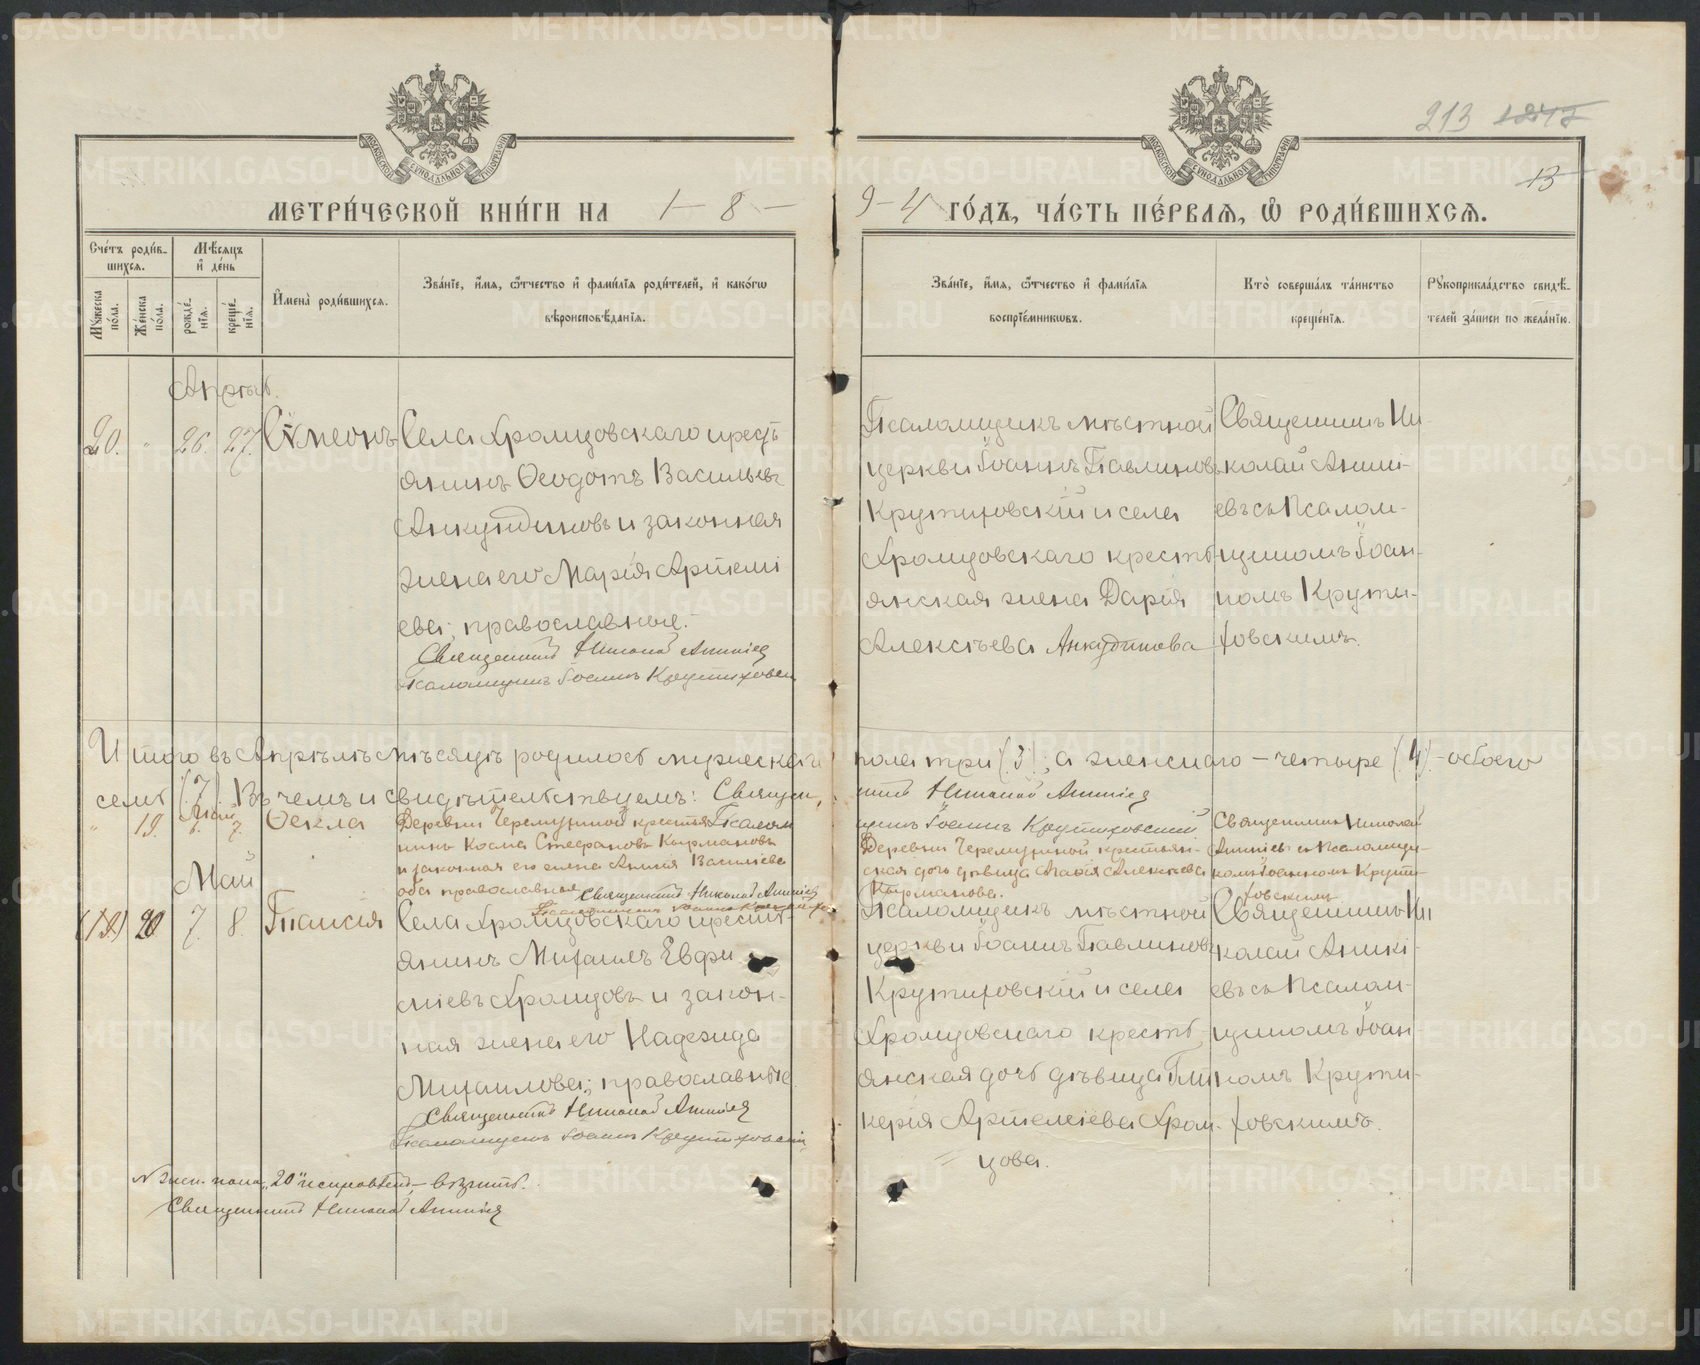 213 1847
13
МЕТРИ́ЧЕСКОЙ КНИ́ГИ НА 1 - 8 -
9 - 4 ГО́ДЪ, ЧА́СТЬ ПЕ́РВАѦ, Ѡ РОДИ́ВШИХСѦ.
Сче́тъ роди́в-
шихся.
Мѣ́сяцъ
и́ де́нь
Мꙋ́жеска
по́ла.
Же́нска
по́ла.
рожде́-
нїя.
креще́-
нїя.
И́мена̀ роди́вшихся.
Зва́нїе, и́мя, ѻ́тчество и́ фами́лїя роди́телей, и́ како́гѡ
вѣроисповѣ́данїя.
Зва́нїе, и́мя, ѻ́тчество и́ фами́лїя
воспрїе́мникѡвъ.
Кто̀ соверша́лъ та́инство
креще́нїя.
Рꙋкоприкла́дство свидѣ́-
телей за́писи по жела́нїю.
Апрѣль.
20. " 26. 27. Сѵмеонъ
Села Хромцовскаго крест
янинъ Ѳеодотъ Васильевъ
Анкундиновъ и законная
жена его Марія Артемі
ева; православные.
Священникъ Николай Аникіев
Псаломщикъ Іоаннъ Крутиховскій
Псаломщикъ мѣстной
церкви Іоаннъ Павлиновъ
Крутиховскій и села
Хромцовскаго кресть
янская жена Дарія
Алексѣева Анкудинова
Священникъ Ни-
колай Аникі-
евъ съ Псалом-
щикомъ Іоан-
номъ Крути-
ховскимъ.
Итого въ Апрѣлѣ мѣсяцѣ родилось мужескаго пола три (3), а женскаго - четыре (4) - обоего
семь (7). Въ чемъ и свидѣтельствуемъ: Священ-
никъ Николай Аникіев
Псалом
щикъ Іоаннъ Крутиховскій
" 19. 6. 7. Ѳекла
Деревни Черемухиной крестья
нинъ Косма Стефановъ Кырмановъ
и законная его жена Анна Василіева
оба православные
Священникъ Николай Аникіев
Деревни Черемухиной крестьян-
ская дочь дѣвица Марія Алексѣева
Кырманова.
Священникъ Николай
Аникіевъ съ Псаломщи-
комъ Іоанномъ Крути-
ховскимъ
Май
(19) 20 7. 8. Таисія
Села Хромцовскаго крест
янинъ Михаилъ Евфи
міевъ Хромцовъ и закон-
ная жена его Надежда
Михаилова; православные
Священникъ Николай Аникіев
Псаломщикъ Іоаннъ Крутиховскій
Псаломщикъ мѣстной
церкви Іоаннъ Павлиновъ
Крутиховскій и села
Хромцовскаго кресть
янская дочь дѣвица Гли
керія Артеміева Хром-
цова.
Священникъ Ни
колай Аникі-
евъ съ Псалом-
щикомъ Іоан
номъ Крути-
ховскимъ.
№ жен. пола "20" исправленъ - вѣрить.
Священникъ Николай Аникіев
METRIKI.GASO-URAL.RU